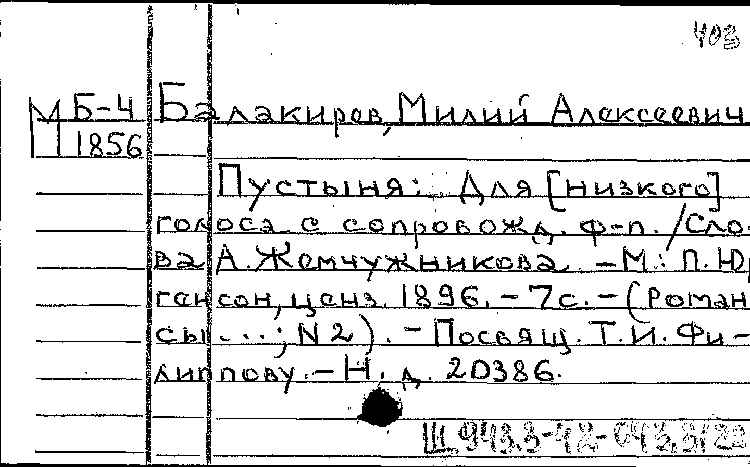 403
М Б-4 Балакирев, Милий Алексеевич
1856
Пустыня: Для [низкого]
голоса с сопровожд. ф-п. /Сло-
ва А. Жемчужникова. - М.: П. Юр
генсон, ценз. 1896. - 7с. - (Роман
сы ...; N2). - Посвящ. Т. И. Фи-
липпову. - Н. д. 20386.
Щ 943.3-42-